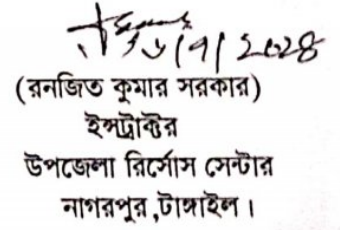 (রনজিত কুমার সরকার)
ইন্সট্রাক্টর
উপজেলা রির্সোস সেন্টার
নাগরপুর,টাঙ্গাইল।